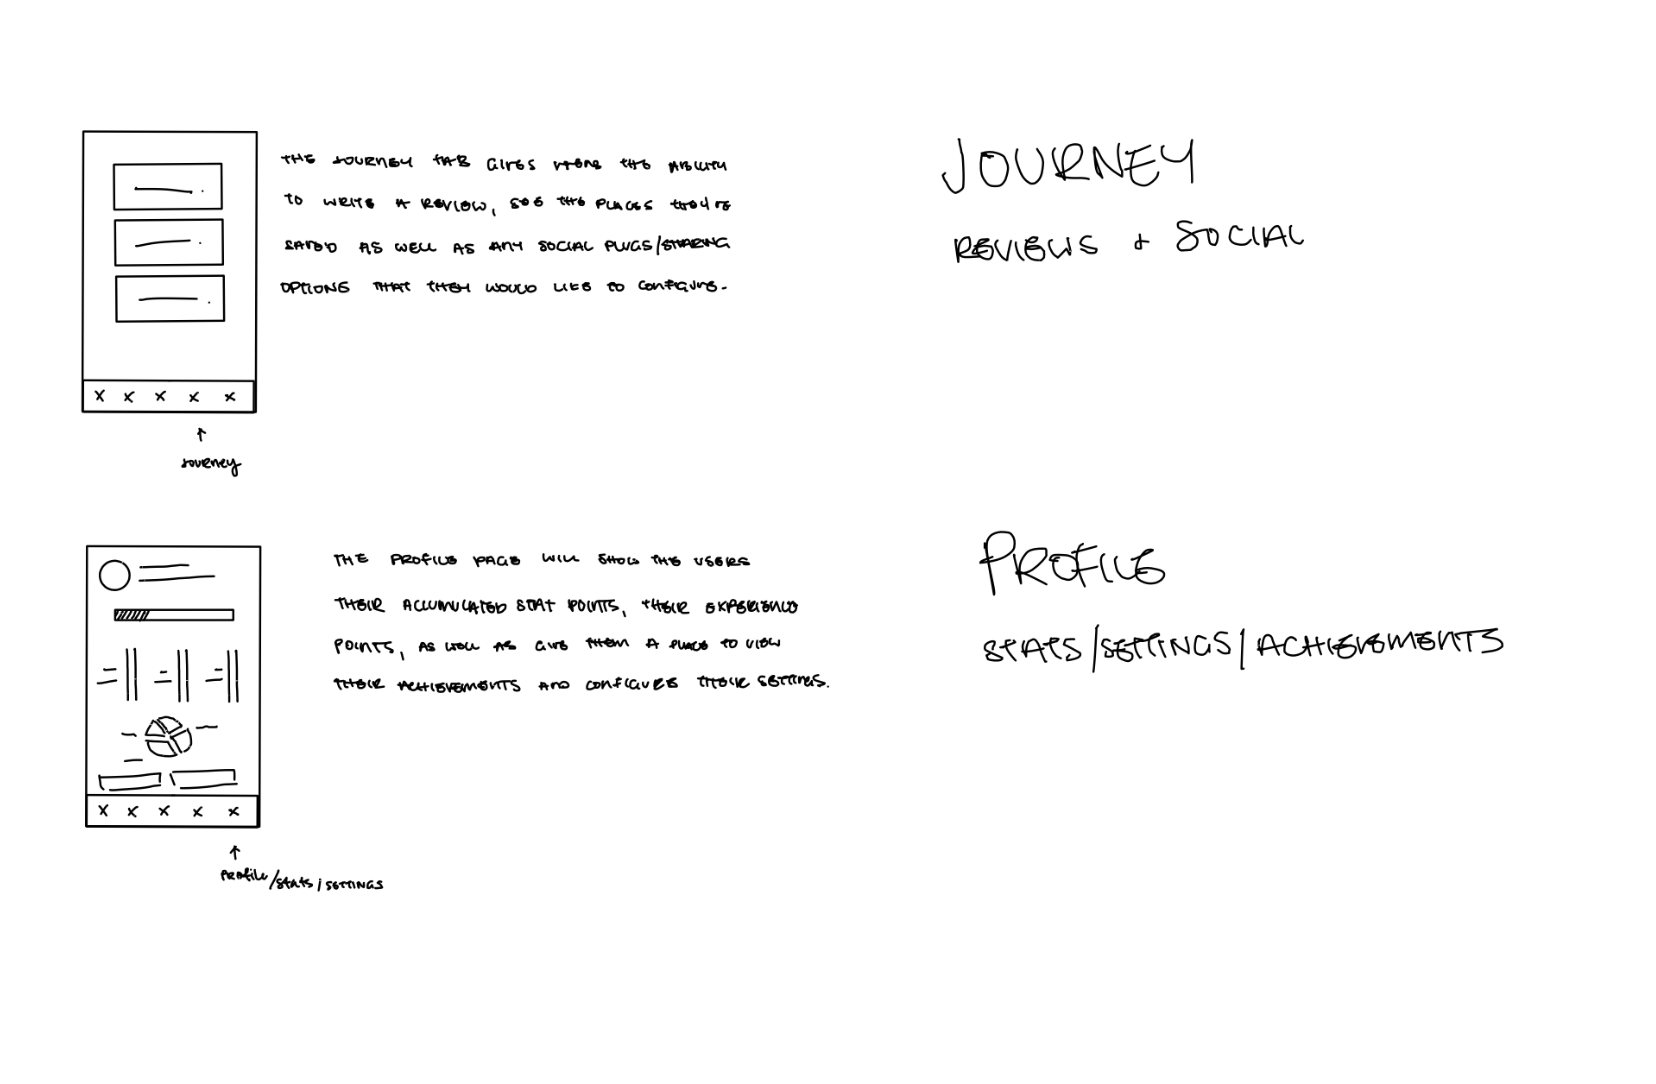 THE JOURNEY TAB GIVES THE ABILITY
TO WRITE A REVIEW, SEE THE PLACES THEY'VE
SAVED AS WELL AS ANY SOCIAL PLUGS/SHARING
OPTIONS THAT THEY WOULD LIKE TO CONFIGURE.
JOURNEY
REVIEWS + SOCIAL
X X X X X
JOURNEY
THE PROFILE PAGE WILL SHOW THE USERS
THEIR ACCUMULATED STAT POINTS, THEIR EXPERIENCE
POINTS, AS WELL AS GIVE THEM A PLACE TO VIEW
THEIR ACHIEVEMENTS AND CONFIGURE THEIR SETTINGS.
PROFILE
STATS/SETTINGS/ACHIEVEMENTS
X X X X X
Profile/Stats/SETTINGS